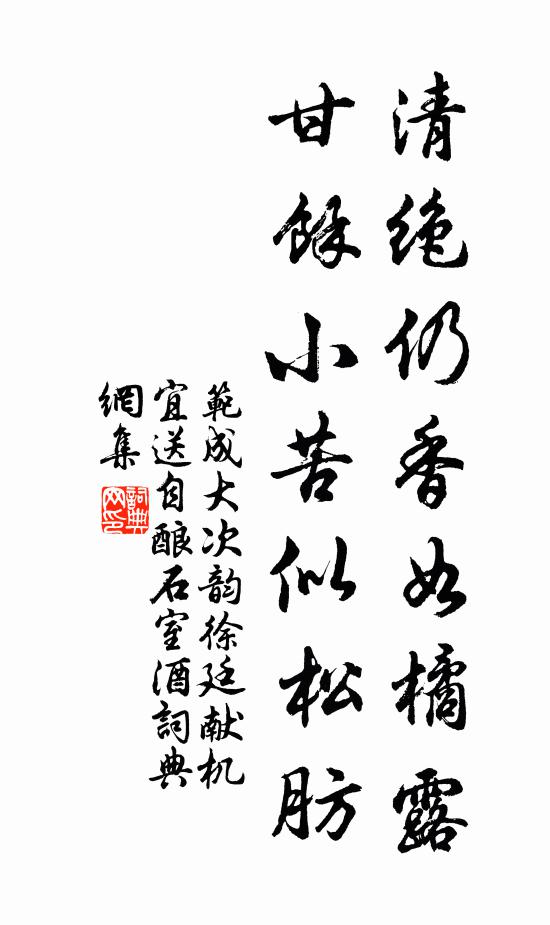 清絶仍香如橘露
甘餘小苦似松肪
範成大次韵徐廷献机
宜送自酿石室酒詞典
網集
詞典
网印